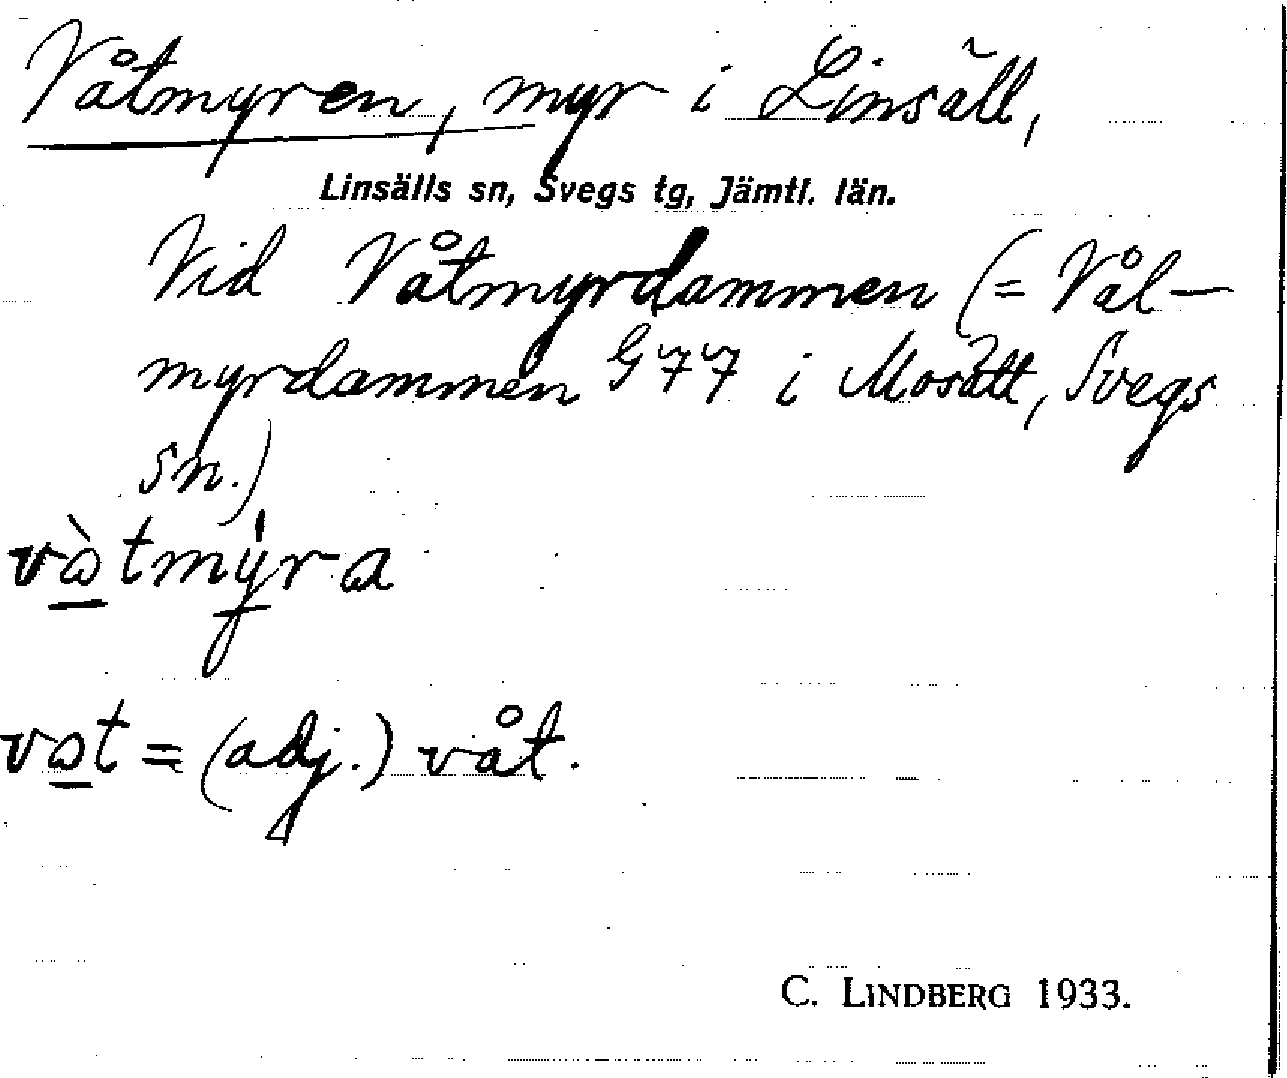 Våtmyren, myr i Linsäll,
Linsälls sn, Svegs tg, Jämtl. län.
Vid Våtmyrdammen (= Vål-
myrdammen G 77 i Mosätt, Svegs
sn.)
vὼtmy̱̍ra
vω̱t = (adj.) våt.
C. LINDBERG 1933.